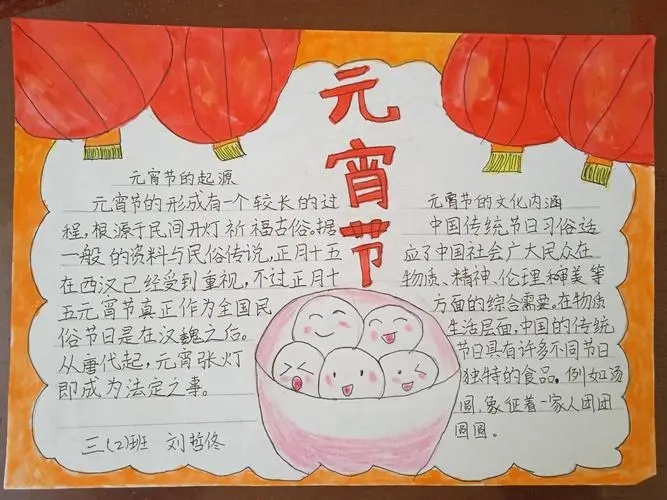 元宵节
元宵节的起源
元宵节的形成有一个较长的过
程,根源于民间开灯祈福古俗。据
一般的资料与民俗传说,正月十五
在西汉已经受到重视,不过正月十
五元宵节真正作为全国民
俗节日是在汉魏之后。
从唐代起,元宵张灯
即成为法定之事。
三、(2)班 刘哲佟
元宵节的文化内涵
中国传统节日习俗适
应了中国社会广大民众在
物质、精神、伦理和审美等
方面的综合需要。在物质
生活层面,中国的传统
节日具有许多不同节日
独特的食品。例如汤
圆,象征着一家人团团
圆圆。